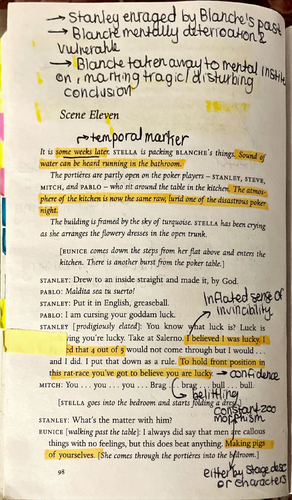 → Stanley enraged by Blanche's past
→ Blanche mentally deterioation &
vulnerable
→ Blanche taken away to mental instit
on, marking tragic/disturbing
conclusion
Scene Eleven
→ temporal marker
It is some weeks later. STELLA is packing BLANCHE's things. Sound of
water can be heard running in the bathroom.
The portières are partly open on the poker players – STANLEY, STEVE,
MITCH, and PABLO – who sit around the table in the kitchen. The atmos-
phere of the kitchen is now the same raw, lurid one of the disastrous poker
night.
The building is framed by the sky of turquoise. STELLA has been crying
as she arranges the flowery dresses in the open trunk.
[EUNICE comes down the steps from her flat above and enters the
kitchen. There is another burst from the poker table.]
STANLEY: Drew to an inside straight and made it, by God.
PABLO: Maldita sea tu suerto!
STANLEY: Put it in English, greaseball.
PABLO: I am cursing your goddam luck.
Inflated sense of
invincibility
STANLEY [prodigiously elated]: You know what luck is? Luck is
ring you're lucky. Take at Salerno. I believed I was lucky. I
ed that 4 out of 5 would not come through but I would . . .
and I did. I put that down as a rule. To hold front position in
this rat-race you've got to believe you are lucky.
→ confidence
MITCH: You . . . you . . . you . . . Brag . . . brag . . . bull . . . bull.
belittling
[STELLA goes into the bedroom and starts folding a dress.]
constant zoo
morphism
STANLEY: What's the matter with him?
EUNICE [walking past the table]: I always did say that men are callous
things with no feelings, but this does beat anything. Making pigs
of yourselves. [She comes through the portières into the bedroom.]
either by stage desc
or characters
98